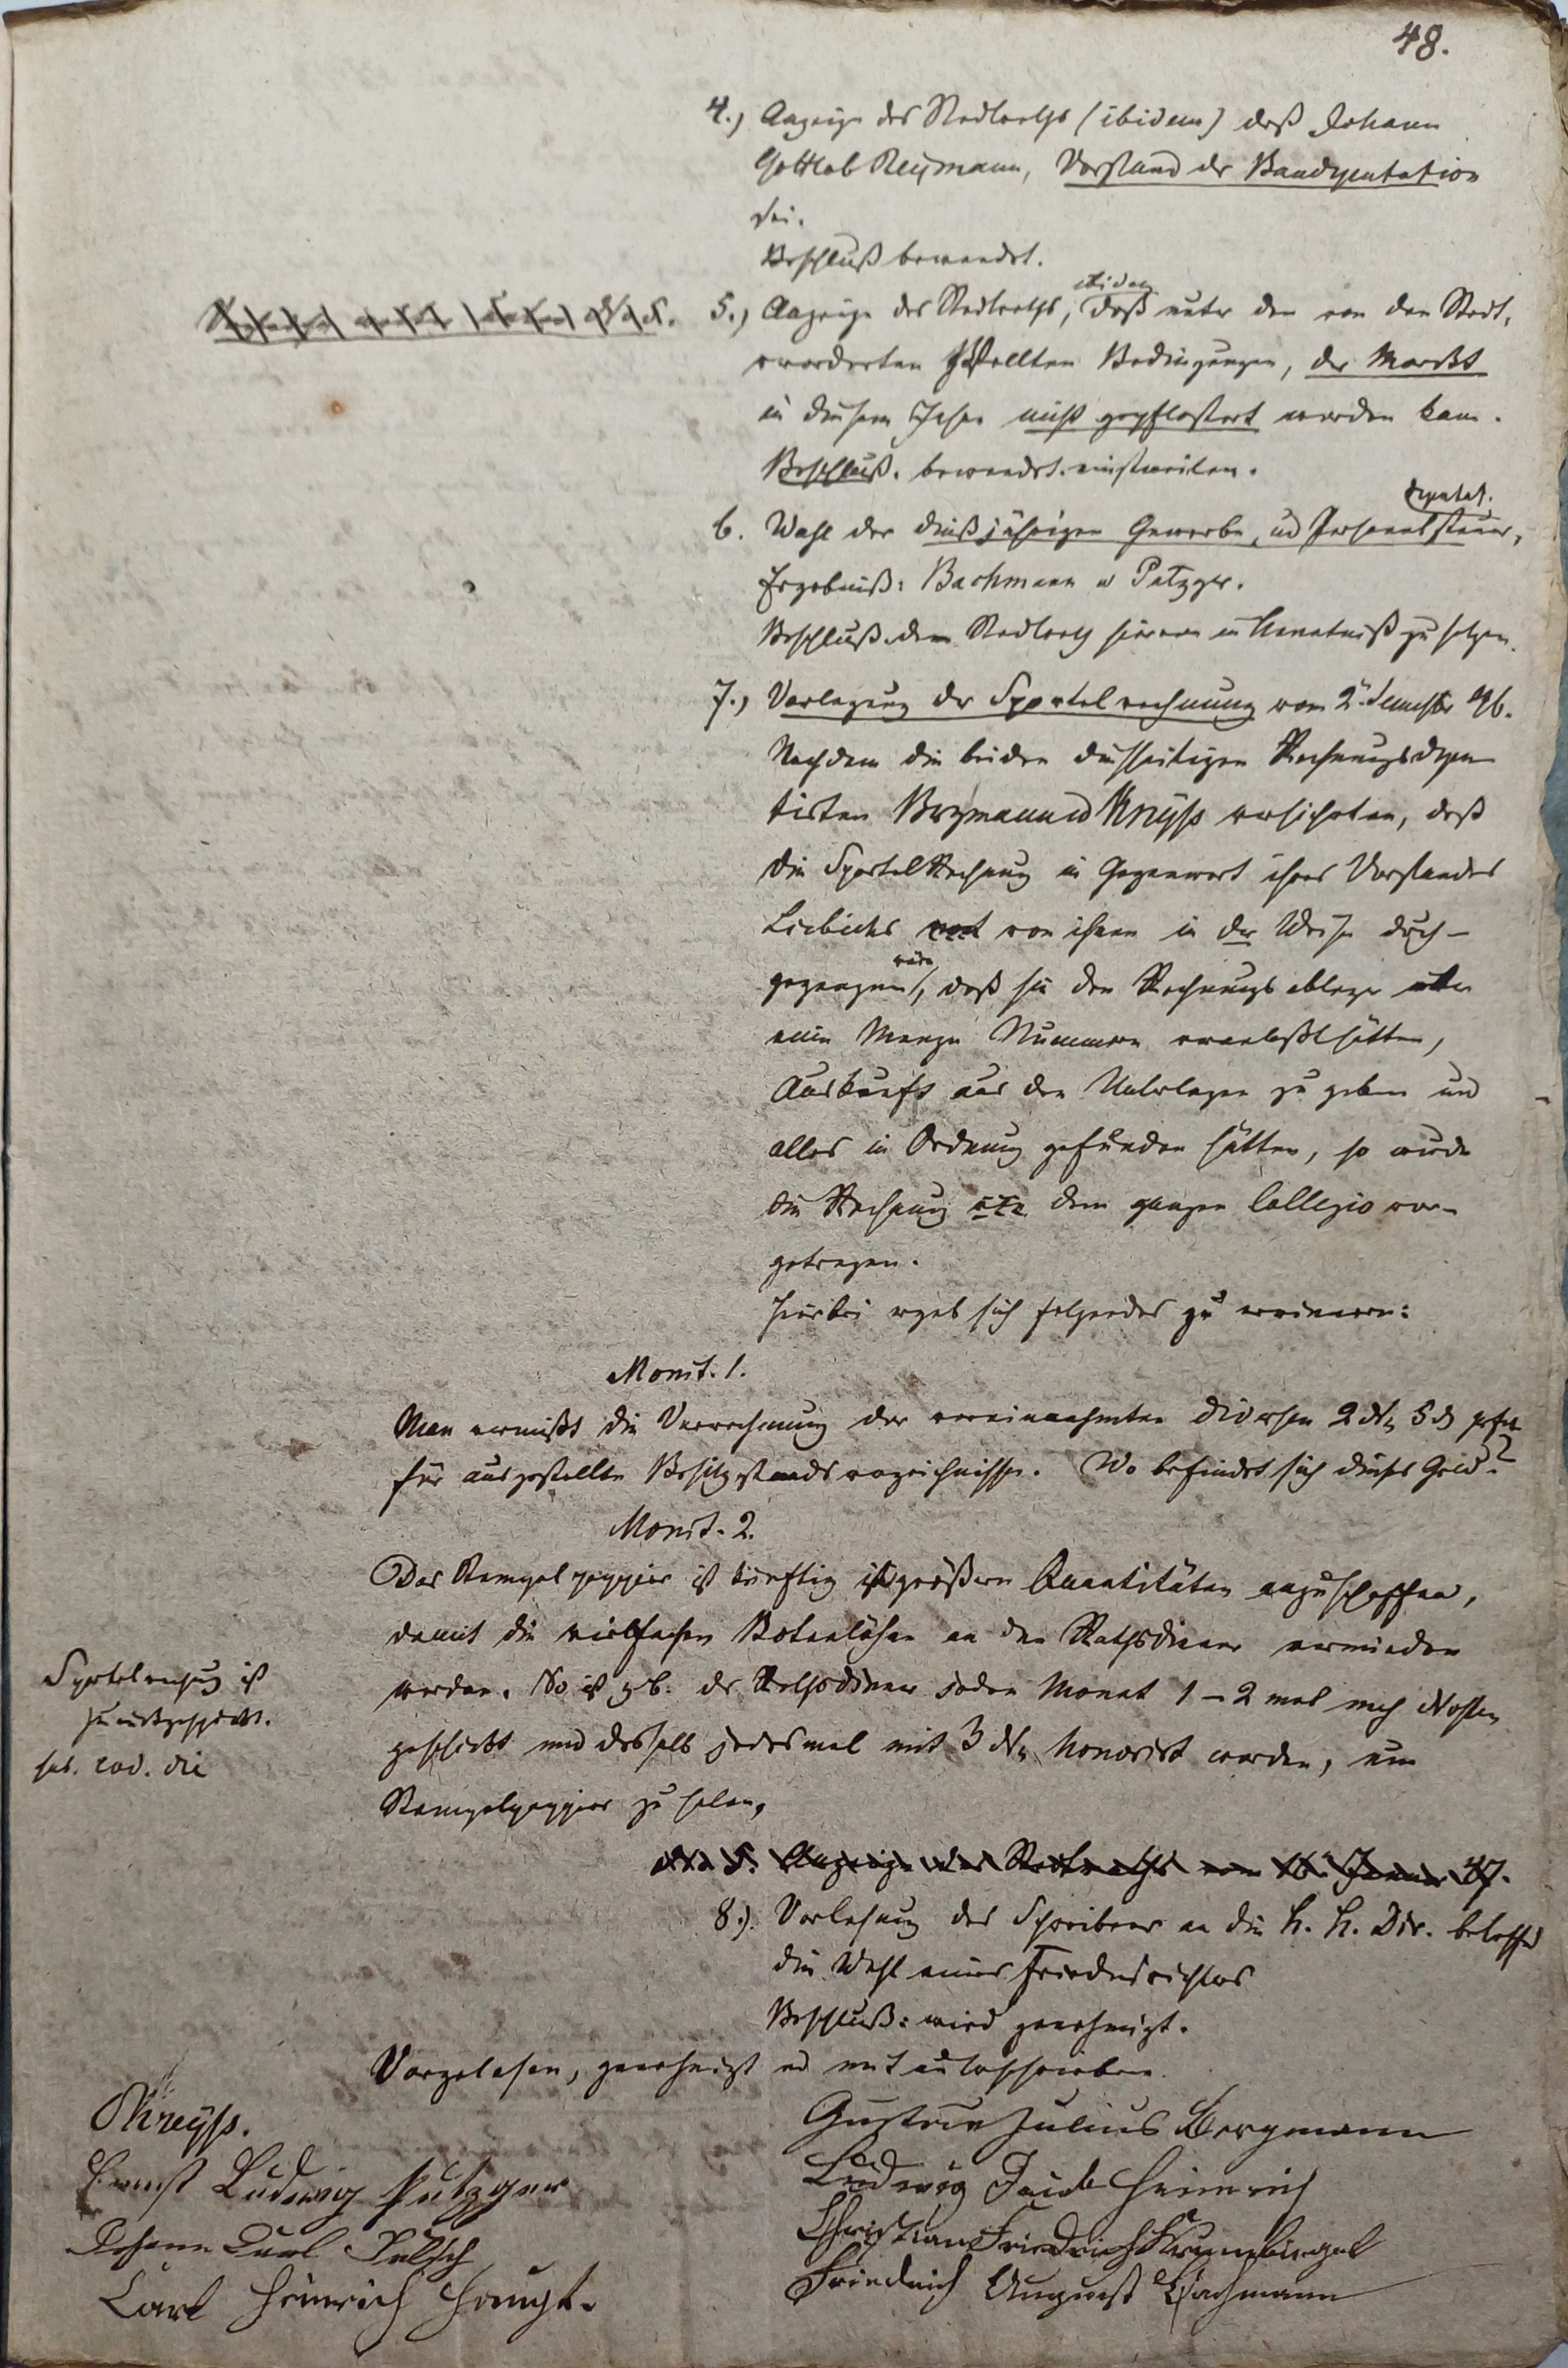 48.
4.) Anzeige des Stadtraths (ibidem) daß Johann
Gottlob Reymann, Vorstand der Baudeputation
sei.
Beschluß bewendet.
5.) Anzeige des Stadtraths, ibidem daß unter den von den Stadt-
verordneten gestellten Bedingungen, der Markt
in diesem Jahre nicht gepflastert werden kann.
Beschluß. bewendet einstweilen.
6. Wahl der dießjährigen Gewerbe- und Personalsteuer- deputat.
Ergebniß: Bachmann u Putzger.
Beschluß. dem Stadtrath hiervon in Kenntniß zu setzen.
7.) Vorlegung der Sportelrechnung vom 2. Semester 46.
Nachdem die beiden diesseitigen Rechnungsdepu-
tirten Bergmann und Kreyß versicherten, daß
die Sportel Rechnung in Gegenwart ihres Vorstandes
Liebichs von ihnen in der Weise durch-
gegangen wäre, daß sie den Rechnungsableger über
eine Menge Nummern veranlaßt hätten,
Auskunft aus den Unterlagen zu geben und
alles in Ordnung gefunden hätten, so wurde
die Rechnung dem ganzen Collegio vor-
getragen.
Hierbei ergab sich folgendes zu erinnern:
Monit. 1.
Man vermißt die Verrechnung der vereinnahmten diversen 2 Ngr 5 d
für ausgestellte Besitzstandsverzeichnisse. Wo befindet sich dieses Geld?
Monit. 2.
Das Stempelpappier ist künftig in größern Quantitäten anzuschaffen,
damit die vielfachen Botenlöhne an den Rathsdiener vermieden
werden. So ist z.B. der Rathsdiener jeden Monat 1 – 2 mal nach Nossen
geschickt und deshalb jedesmal mit 3 Ngr honorirt worden, um
Stempelpappier zu holen.
Sportelrechnung ist
zurückgeschickt.
hab. eod. die
5. Anzeige des Stadtraths vom 16. Januar 47.
8.) Vorlesung des Schreibens an die K. K. Dir. betreffend
die Wahl eines Friedensrichters
Beschluß: wird genehmigt.
Vorgelesen, genehmigt und mitunterschrieben
Kreyß.
Gustav Julius Bergmann
Ernst Ludwig Putzger
Ludwig Heinrich
Johann Carl
Christian Friedrich Krumbiegel
Carl Heinrich Haupt.
Friedrich August Bachmann